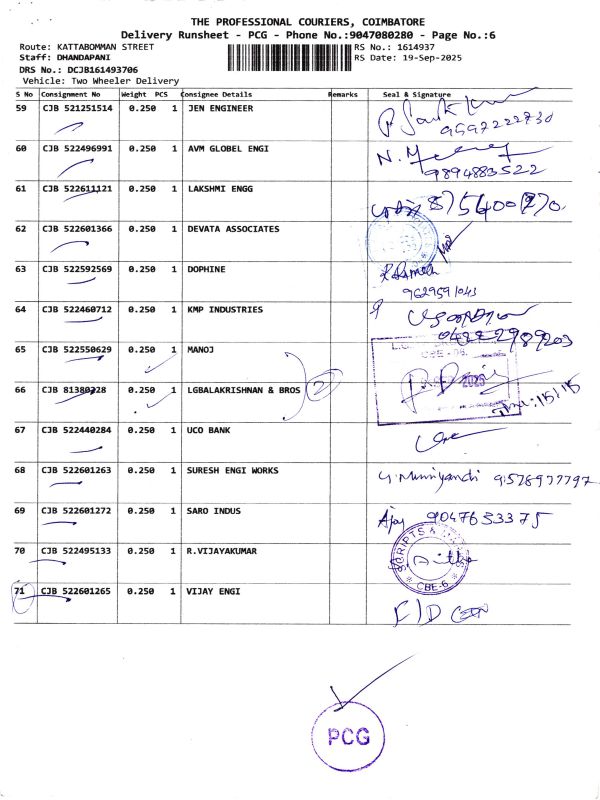 THE PROFESSIONAL COURIERS, COIMBATORE
Delivery Runsheet - PCG - Phone No.:9047080280 - Page No.:6
Route: KATTABOMMAN STREET
RS No.: 1614937
Staff: DHANDAPANI
RS Date: 19-Sep-2025
DRS No.: DCJB161493706
Vehicle: Two Wheeler Delivery
S No Consignment No Weight PCS Consignee Details Remarks Seal & Signature
59 CJB 521251514 0.250 1 JEN ENGINEER
9597222730
60 CJB 522496991 0.250 1 AVM GLOBEL ENGI
9894883522
61 CJB 522611121 0.250 1 LAKSHMI ENGG
62 CJB 522601366 0.250 1 DEVATA ASSOCIATES
63 CJB 522592569 0.250 1 DOPHINE
9629591043
64 CJB 522460712 0.250 1 KMP INDUSTRIES
04222989203
65 CJB 522550629 0.250 1 MANOJ
66 CJB 81380228 0.250 1 LGBALAKRISHNAN & BROS 2
2025
67 CJB 522440284 0.250 1 UCO BANK
68 CJB 522601263 0.250 1 SURESH ENGI WORKS
G. Muniyandi 9578977797
69 CJB 522601272 0.250 1 SARO INDUS
Ajay 9047633375
70 CJB 522495133 0.250 1 R.VIJAYAKUMAR
CBE-6
71 CJB 522601265 0.250 1 VIJAY ENGI
PCG